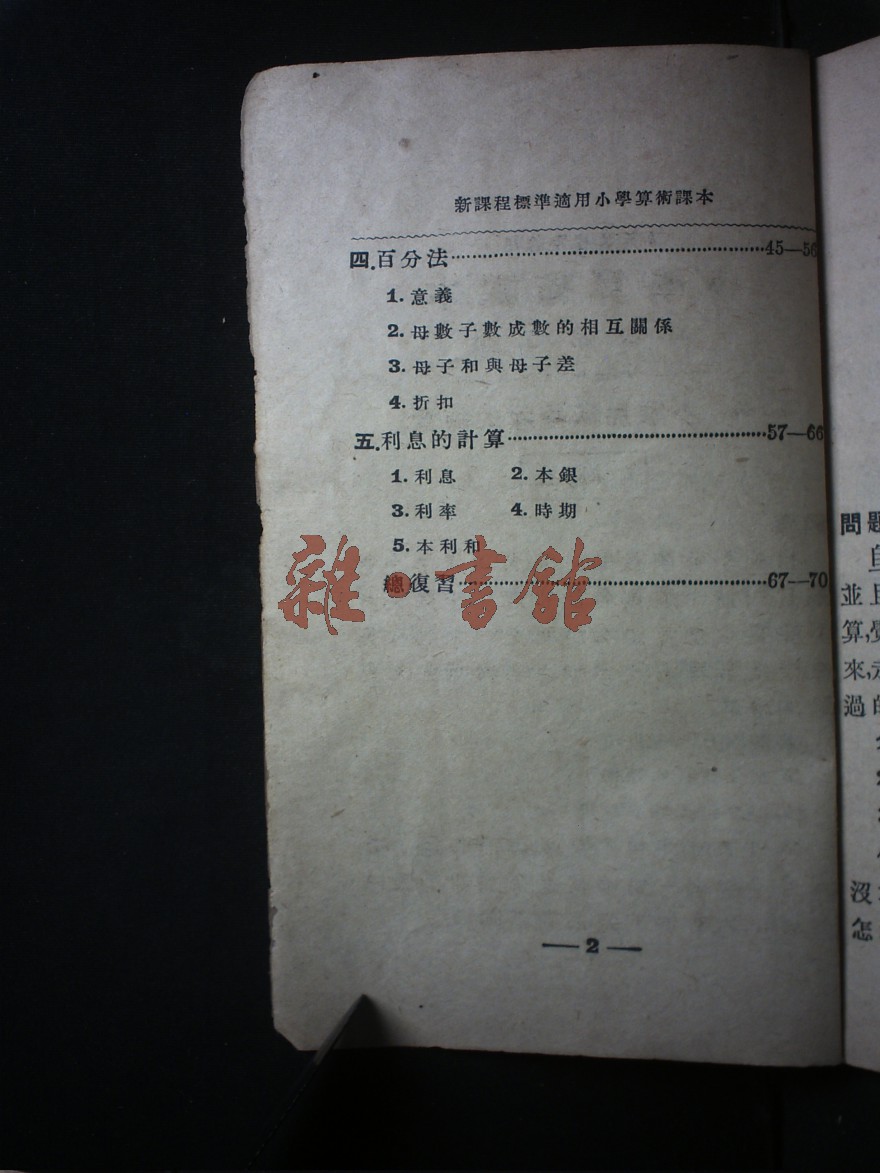 新課程標準適用小學算術課本
四.百分法……45—56
1.意義
2.母數子數成數的相互關係
3.母子和與母子差
4.折扣
五.利息的計算……57—66
1.利息 2.本銀
3.利率 4.時期
5.本利和
總復習……67—70
雜·書館
— 2 —
問題
並且
算,覺
來,
過的
沒
怎